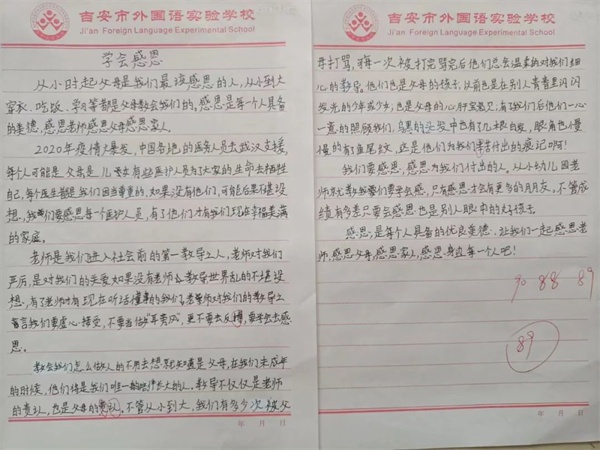 吉安市外国语实验学校
Ji'an Foreign Language Experimental School
学会感恩
从小时起父母是我们最该感恩的人,从小到大
穿衣、吃饭、学习等都是父母教会我们的,感恩是每一个人具备
的美德,感恩老师感恩父母感恩家人。
2020年疫情爆发,中国各地的医务人员去武汉支援,
每个人可能是父亲是儿女去有些医护人员为了大家的生命去牺牲
自己,每个医生都是我们因当尊重的,如果没有他们,可能后果不堪设
想,我们要感恩每一个医护人员,有了他们才有我们现在幸福美满
的家庭。
老师是我们进入社会前的第一教导之人,老师对我们
严厉,是对我们的关爱如果没有老师的教导世界乱的不堪设
想,有了老师才有现在听话懂事的我们,老师对我们的教导之
言我们要虚心接受,不要当做“耳旁风”更不要去反抗,要学会去感
恩。
教会我们怎么做人的不用去想就知道是父母,在我们未成年
的时候,他们将是我们唯一的陪伴长大的人,教导不仅仅是老师
的责认,也是父母的责认,不管从小到大,我们有多少次被父
年 月 日
吉安市外国语实验学校
Ji'an Foreign Language Experimental School
母打骂,每一次被打完骂完后他们总会温柔的对我们细
心的教导。他们也是父母的孩子,以前也是在别人青春里闪闪
发光的少年或少女,也是父母的心肝宝贝儿,有我们后他们一心
一意的照顾我们,乌黑的头发中也有了几根白发,眼角也慢
慢的有鱼尾纹,这是他们为我们付出的痕记啊!
我们要感恩,感恩为我们付出的人。从小幼儿园老
师就教我们要学会感,只有感恩才会有更多的朋友。不管成
绩有多差只要会感恩也是别人眼中的好孩子。
感恩,是每个人具备的优良美德,让我们一起感恩老
师,感恩父母,感恩家人,感恩身边每一个人吧!
90 88 89
89
年 月 日